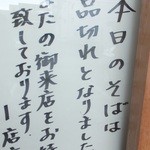 本日のそばは
品切れとなりました
またの御来店をお待
致しております。
店